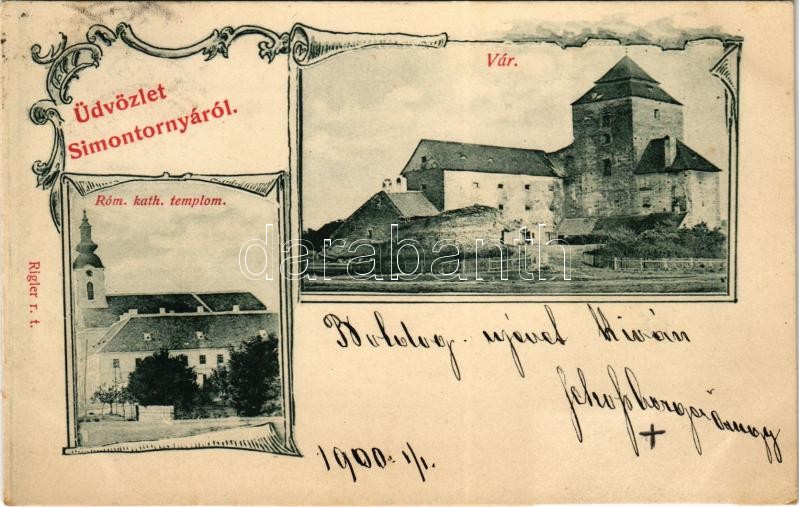 Üdvözlet
Simontornyáról.
Vár.
Róm. kath. templom.
Rigler r. t.
darabanth
Boldog ujévet kiván
1900. 1/1.